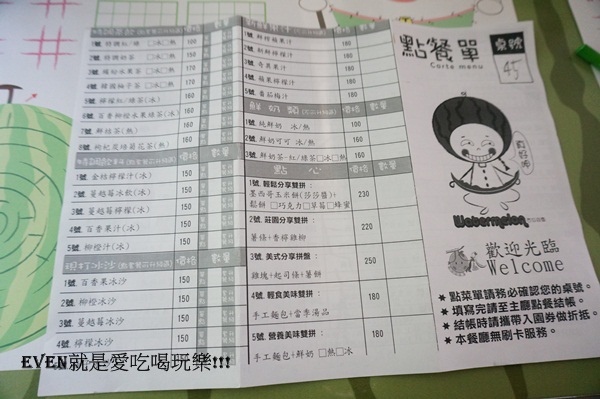 點餐單
Carte menu
桌號
45
1號 特調紅/綠 □冰□熱 100
2號 特調奶茶 □冰□熱
3號 繽紛水果茶 □冰□熱 160
4號 韓國柚子茶 □冰□熱 160
5號 檸檬紅/綠(冰) 150
6號 百香柳橙水果綠茶(冰) 150
7號 鮮桔茶(熱) 150
8號 枸杞炭焙菊花茶(熱)
價格 數量
1號 金桔檸檬汁(冰) 150
2號 蔓越莓冰飲(冰) 150
3號 蔓越莓檸檬(冰) 150
4號 百香果汁(冰) 150
5號 柳橙汁(冰) 150
現打冰沙 價格 數量
1號 百香果冰沙 150
2號 柳橙冰沙 150
3號 蔓越莓冰沙 150
4號 檸檬冰沙 150
1號 鮮榨蘋果汁 160
3號 奇異果汁
4號 蘋果檸檬汁 180
5號 番茄梅汁 160
鮮奶類 價格 數量
1號 純鮮奶 冰/熱 100
2號 鮮奶可可 冰/熱 180
3號 鮮奶茶-紅/綠茶□冰□熱 150
點心 價格 數量
1號. 輕鬆分享雙拼：
墨西哥玉米餅(莎莎醬)+
鬆餅 □巧克力□草莓□蜂蜜
230
2號. 莊園分享雙拼：
薯條+香檸雞柳
220
3號. 美式分享拼盤
雞塊+起司條+薯餅
250
4號. 輕食美味雙拼：
手工麵包+當季湯品
180
5號. 營養美味雙拼：
手工麵包+鮮奶 □熱□冰
180
真好喝
Watermelon
歡迎光臨
Welcome
★ 點菜單請務必確認您的桌號。
★ 填寫完請至主廳點餐結帳。
★ 結帳時請攜帶入園券做折抵。
★ 本餐廳無刷卡服務。
EVEN就是愛吃喝玩樂!!!